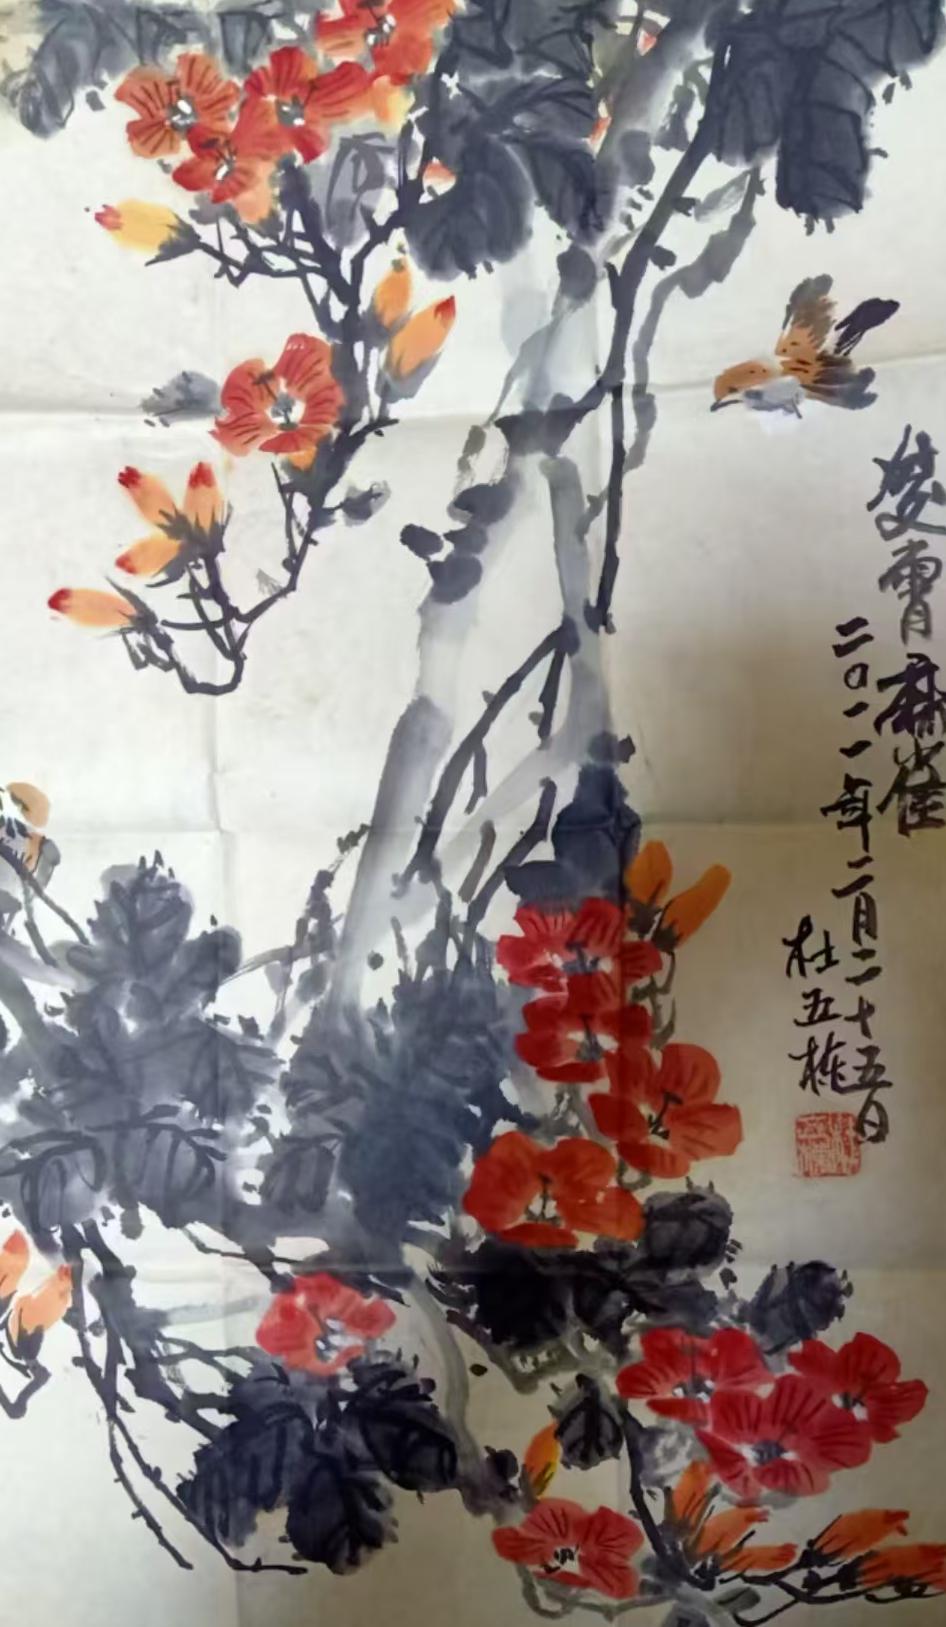 凌霄麻雀
二〇一一年二月二十五日
杜五